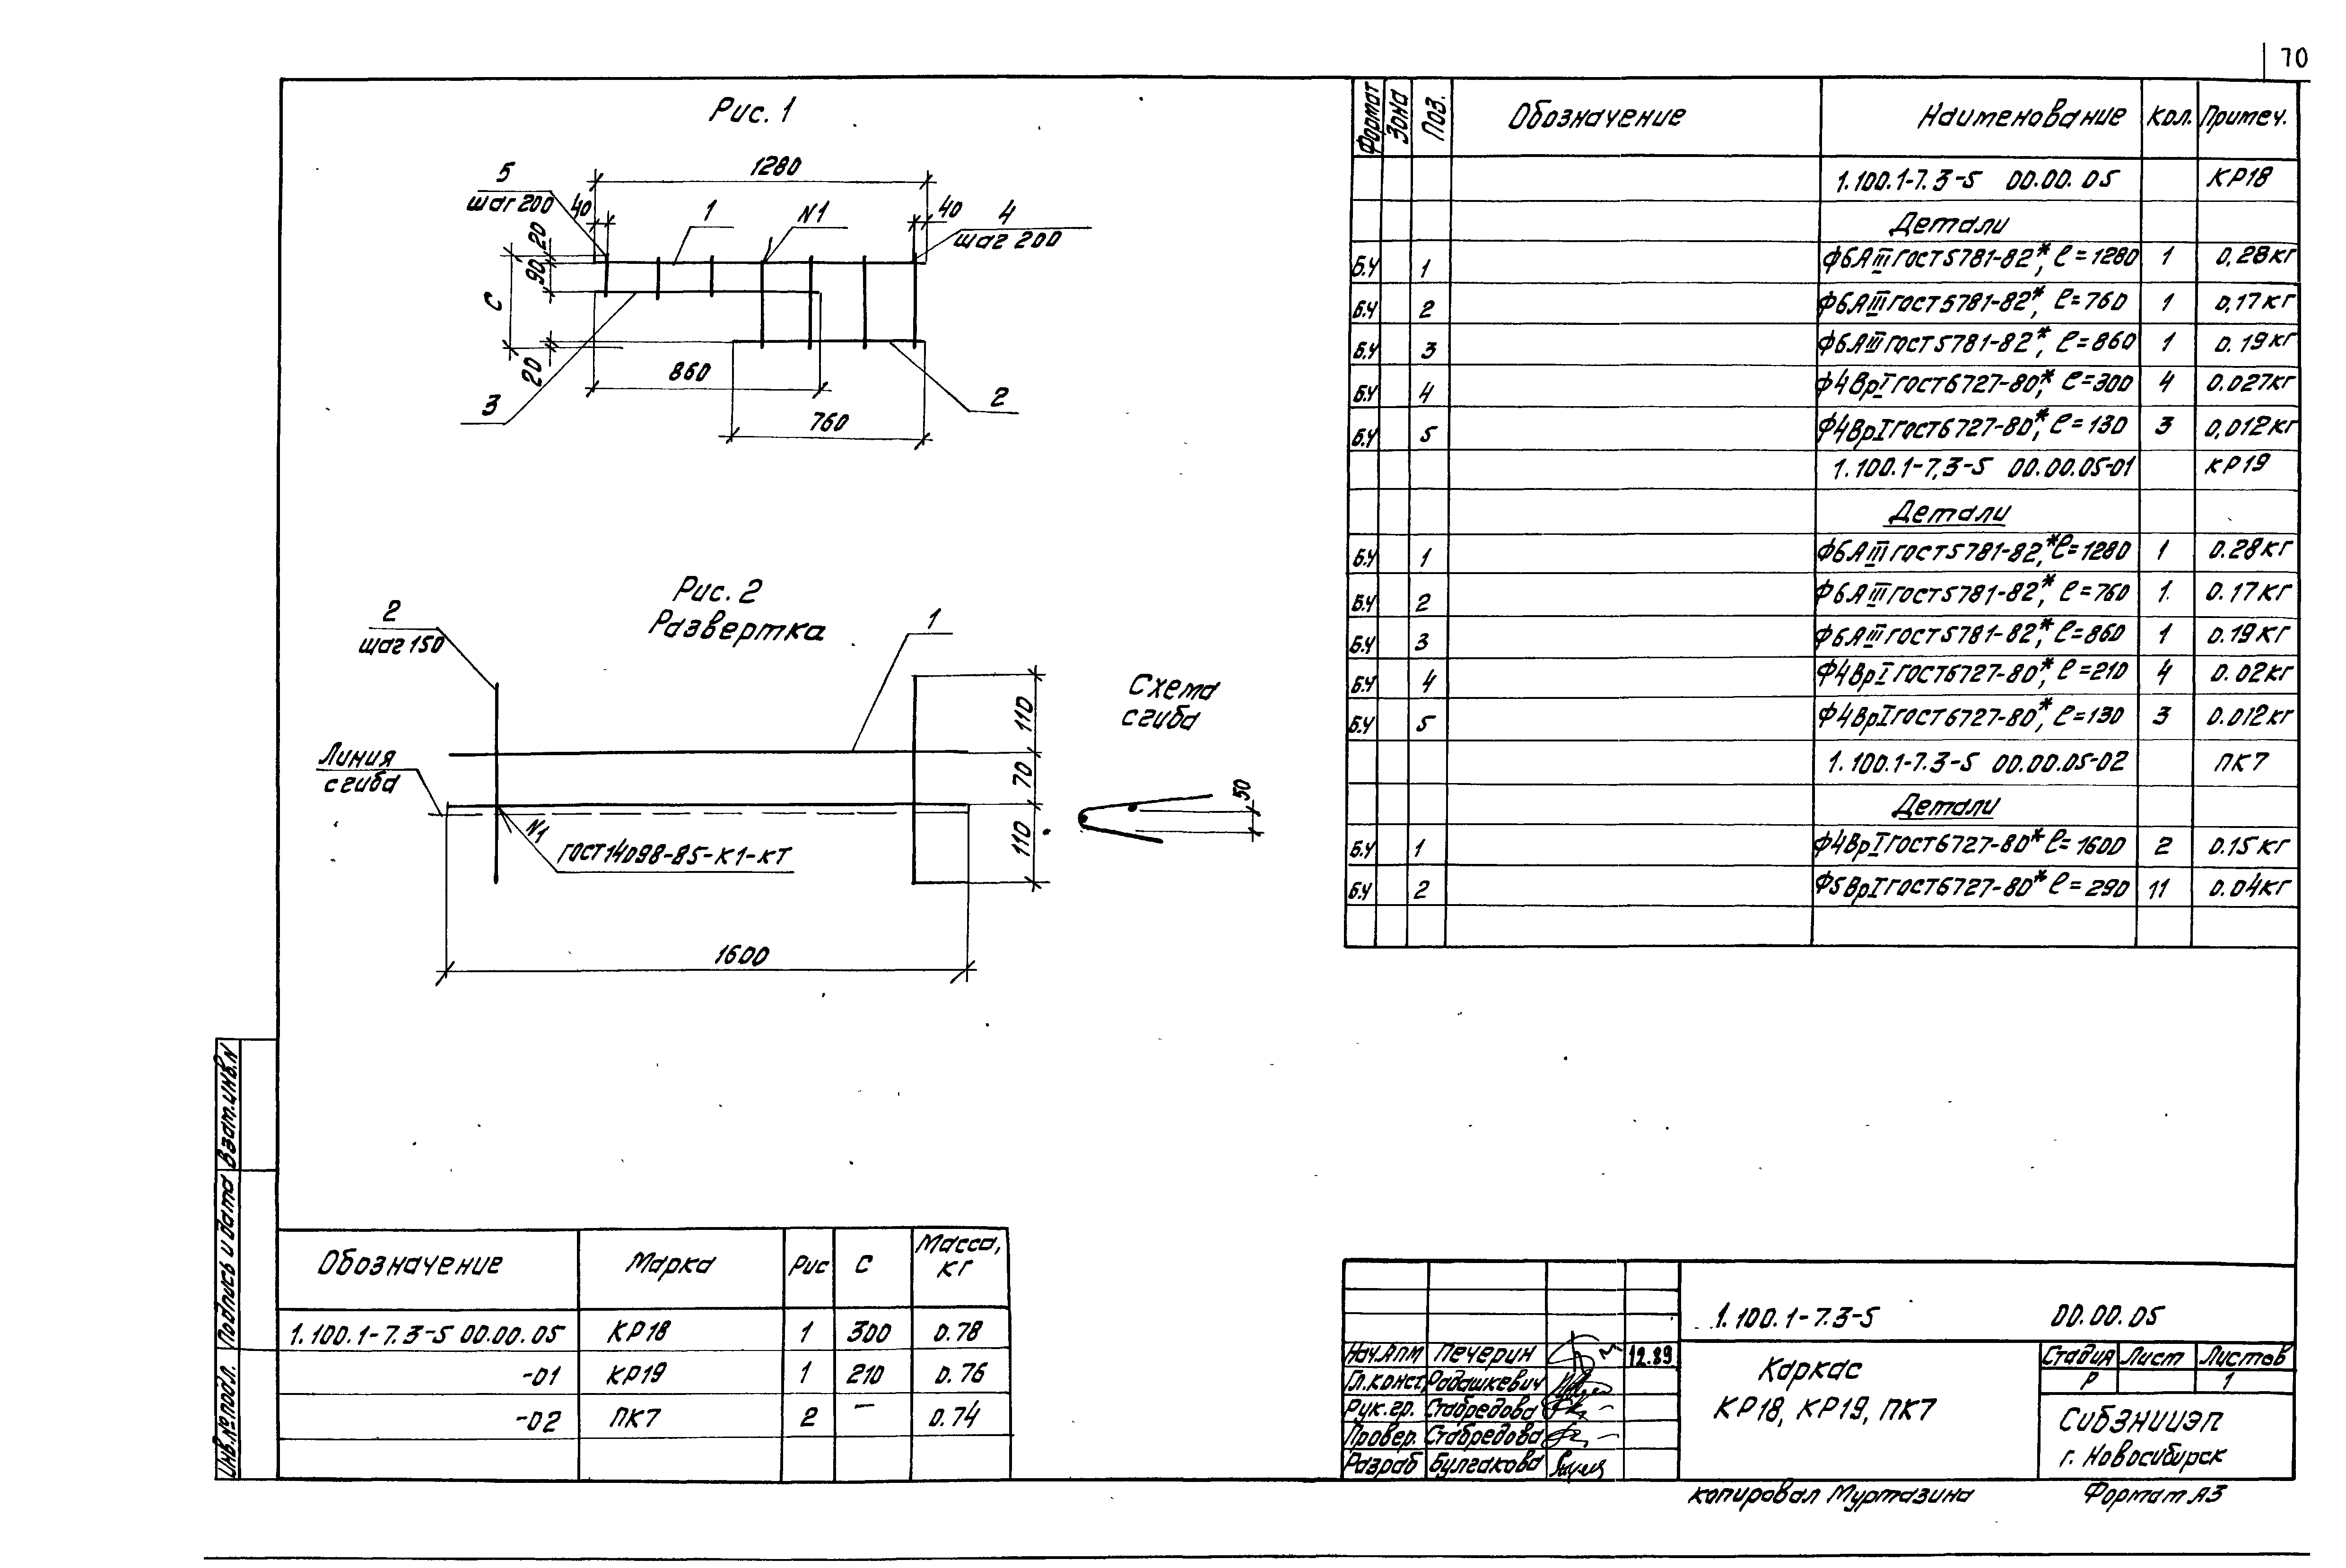 70
Рис. 1
1280
5
шаг 200
40
1
N1
40
4
шаг 200
20
90
С
20
860
3
2
760
Рис. 2
Развертка
2
шаг 150
1
110
70
110
Линия
сгиба
N1
ГОСТ14098-85-К1-КТ
1600
Схема
сгиба
50
Формат Зона Поз. Обозначение Наименование Кол. Примеч.
1.100.1-7.3-5 00.00.05 КР18
Детали
Б.Ч 1 Ф6АIII ГОСТ5781-82*, ℓ=1280 1 0,28кг
Б.Ч 2 Ф6АIII ГОСТ5781-82*, ℓ=760 1 0,17кг
Б.Ч 3 Ф6АIII ГОСТ5781-82*, ℓ=860 1 0.19кг
Б.Ч 4 Ф4ВрI ГОСТ6727-80*, ℓ=300 4 0.027кг
Б.Ч 5 Ф4ВрI ГОСТ6727-80*, ℓ=130 3 0,012кг
1.100.1-7,3-5 00.00.05-01 КР19
Детали
Б.Ч 1 Ф6АIII ГОСТ5781-82,*ℓ=1280 1 0.28кг
Б.Ч 2 Ф6АIII ГОСТ5781-82*, ℓ=760 1. 0.17кг
Б.Ч 3 Ф6АIII ГОСТ5781-82*, ℓ=860 1 0.19кг
Б.Ч 4 Ф4ВрI ГОСТ6727-80*, ℓ=210 4 0.02кг
Б.Ч 5 Ф4ВрI ГОСТ6727-80*, ℓ=130 3 0.012кг
1.100.1-7.3-5 00.00.05-02 ПК7
Детали
Б.Ч 1 Ф4ВрI ГОСТ6727-80* ℓ=1600 2 0.15кг
Б.Ч 2 Ф5ВрI ГОСТ6727-80* ℓ=290 11 0.04кг
Обозначение Марка Рис С Масса, кг
1.100.1-7.3-5 00.00.05 КР18 1 300 0.78
-01 КР19 1 210 0.76
-02 ПК7 2 — 0.74
Взам.инв.N
Подпись и дата
Инв.№ подл.
1.100.1-7.3-5 00.00.05
Нач.АПМ Печерин 12.89
Гл.конст. Радашкевич
Рук.гр. Стабредова
Провер. Стабредова
Разраб Булгакова
Каркас
КР18, КР19, ПК7
Стадия Лист Листов
Р 1
СибЗНИИЭП
г. Новосибирск
копировал Муртазина Формат А3